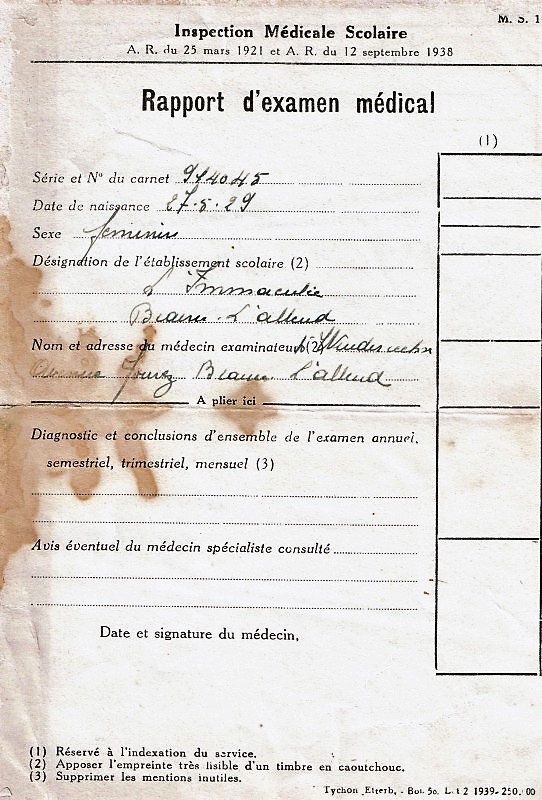 M. S. 1
Inspection Médicale Scolaire
A. R. du 25 mars 1921 et A. R. du 12 septembre 1938
Rapport d'examen médical
(1)
Série et N° du carnet 914045
Date de naissance 27-5-29
Sexe feminin
Désignation de l'établissement scolaire (2)
L'Immaculée
Braine-L'alleud
Nom et adresse du médecin examinateur (2)
Avenue Jourez Braine L'alleud
A plier ici
Diagnostic et conclusions d'ensemble de l'examen annuel,
semestriel, trimestriel, mensuel (3)
Avis éventuel du médecin spécialiste consulté
Date et signature du médecin,
(1) Réservé à l'indexation du service.
(2) Apposer l'empreinte très lisible d'un timbre en caoutchouc.
(3) Supprimer les mentions inutiles.
Tychon Etterb. - Bon 50. L t 2 1939-250.00